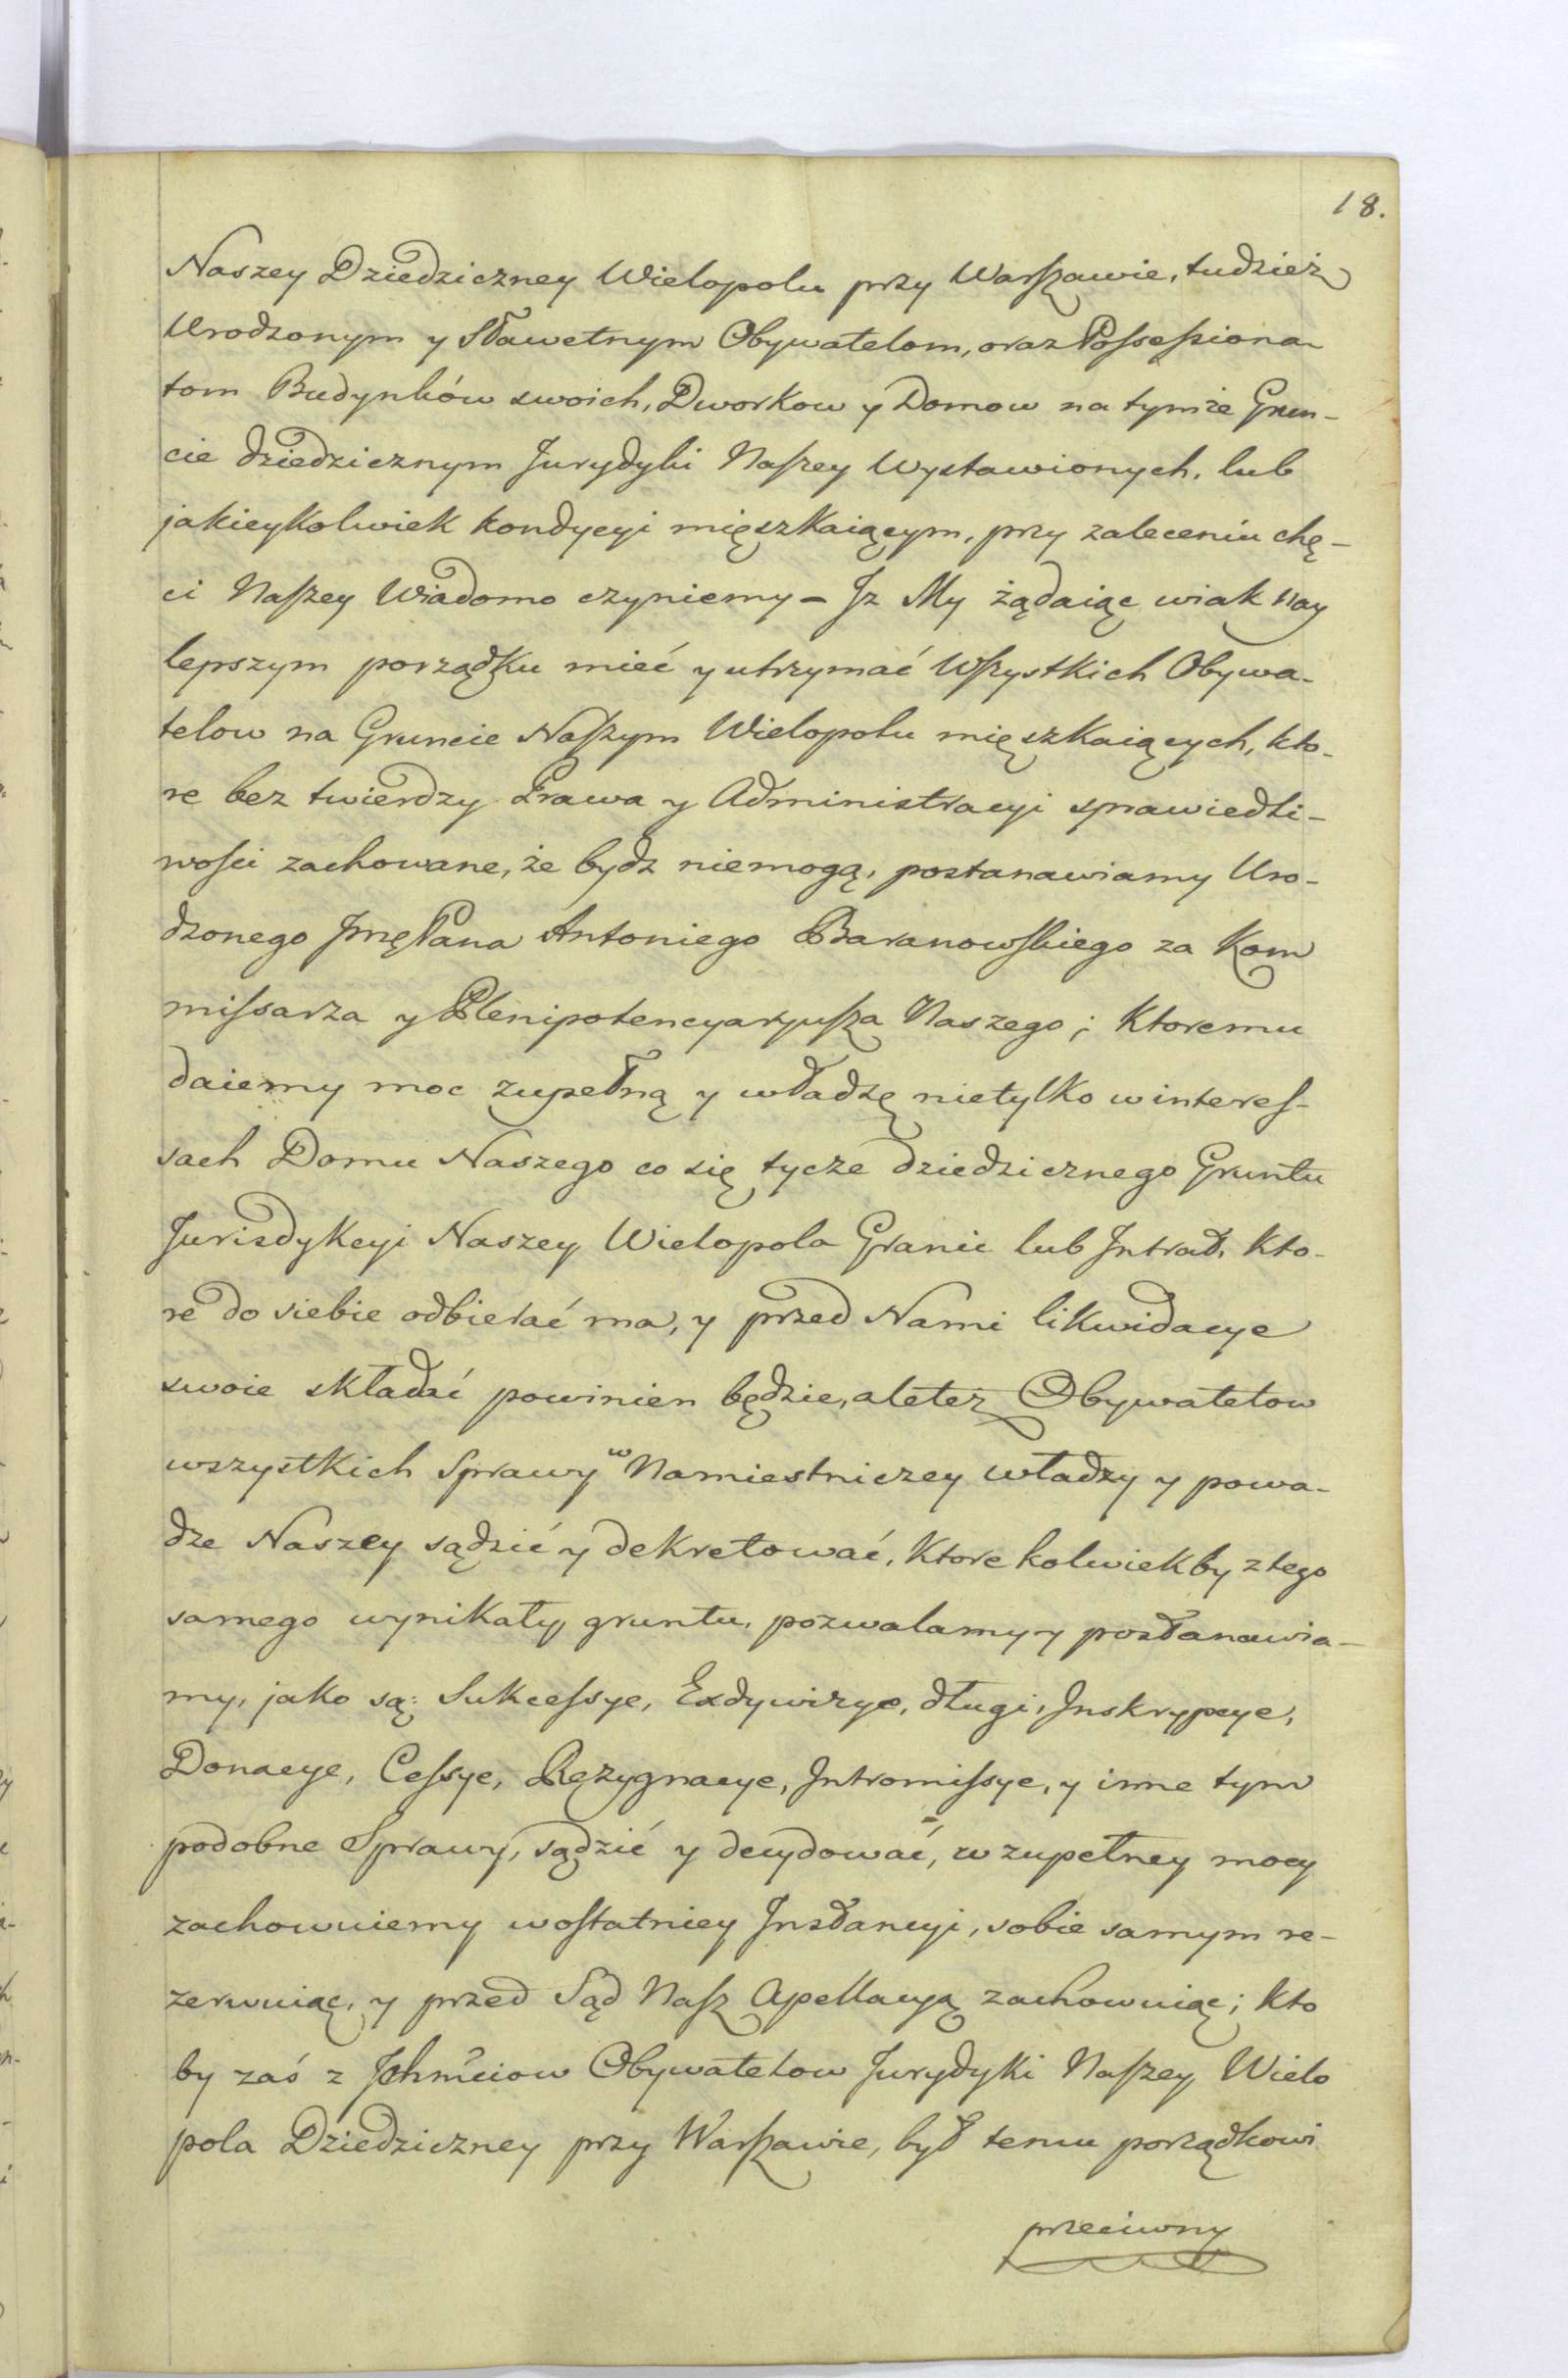 18.
Naszey Dziedziczney Wielopolu przy Warszawie, tudzież
Urodzonym y Sławetnym Obywatelom, oraz Possessiona-
tom Budynków swoich, Dworkow y Domow na tymże Grun-
cie dziedzicznym Jurydyki Naszey Wystawionych, lub
jakieykolwiek kondycyi mięszkaiącym, przy zaleceniu chę-
ci Naszey Wiadomo czyniemy – Jz My żądaiąc wiak nay
lepszym porządku mieć y utrzymać Wszystkich Obywa-
telow na Gruncie Naszym Wielopolu mięszkaiących, kto-
re bez twierdzy Prawa y Administracyi sprawiedli-
wości zachowane, że bydz niemogą, postanawiamy Uro-
dzonego Jmę Pana Antoniego Baranowskiego za Kom
missarza y Plenipotencyaryusza Naszego; Ktoremu
daiemy moc zupełną y władzę nietylko w interes-
sach Domu Naszego co się tycze dziedzicznego Gruntu
Jurisdykcyi Naszey Wielopola Granic lub Jntrat, kto-
re do siebie odbierać ma, y przed Nami likwidacye
swoie składać powinien będzie, aleteż Obywatelow
wszystkich Sprawy w Namiestniczey władzy y powa-
dze Naszey sądzić y dekretować, Ktorekolwiekby z tego
samego wynikały gruntu, pozwalamy y postanawia-
my, jako są: Sukcessye, Exdywizye, długi, Jnskrypcye,
Donacye, Cessye, Rezygnacye, Jntromissye, y inne tym
podobne Sprawy, sądzić y decydować, w zupełney mocy
zachowuiemy w ostatniey Jnstancyi, sobie samym re-
zerwuiąc, y przed Sąd Nasz Apellacyą zachowuiąc; kto
by zaś z Jchmciow Obywatelow Jurydyki Naszey Wielo
pola Dziedziczney przy Warszawie, był temu porządkowi
przeciwny